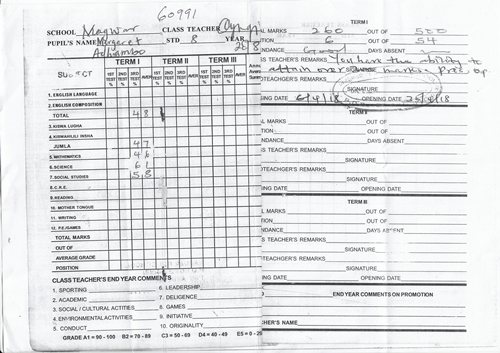 60991
SCHOOL Magwar CLASS TEACHER
PUPIL'S NAME Margaret STD 8 YEAR
Adhiambo 2018
SUBJECT TERM I TERM II TERM III
1ST TEST 2ND TEST 3RD TEST AVER 1ST TEST 2ND TEST 3RD TEST AVER 1ST TEST 2ND TEST 3RD TEST AVER
% % % % % % % % % % % %
1. ENGLISH LANGUAGE
2. ENGLISH COMPOSITION
TOTAL 48
3. KISWA LUGHA
4. KISWAHILI INSHA
JUMLA 47
5. MATHEMATICS 46
6. SCIENCE 61
7. SOCIAL STUDIES 58
8. C.R.E.
9. READING
10. MOTHER TONGUE
11. WRITING
12. P.E./GAMES
TOTAL MARKS
OUT OF
AVERAGE GRADE
POSITION
CLASS TEACHER'S END YEAR COMMENTS
1. SPORTING 6. LEADERSHIP
2. ACADEMIC 7. DELIGENCE
3. SOCIAL / CULTURAL ACTIITIES 8. GAMES
4. ENVIRONMENTAL ACTIVITIES 9. INITIATIVE
5. CONDUCT 10. ORIGINALITY
GRADE A1 = 90 - 100 B2 = 70 - 89 C3 = 50 - 69 D4 = 40 - 49
TERM I
MARKS 260 OUT OF 500
ITION 6 OUT OF 54
NDANCE Good DAYS ABSENT
TEACHER'S REMARKS You have the ability to
attain more marks.
SIGNATURE
6/4/18 OPENING DATE
TERM II
AL MARKS OUT OF
ITION OUT OF
NDANCE DAYS ABSENT
SS TEACHER'S REMARKS
SIGNATURE
D TEACHER'S REMARKS
SIGNATURE
SING DATE OPENING DATE
TERM III
AL MARKS OUT OF
ITION OUT OF
NDANCE DAYS ABSENT
SS TEACHER'S REMARKS
SIGNATURE
D TEACHER'S REMARKS
SIGNATURE
SING DATE OPENING DATE
END YEAR COMMENTS ON PROMOTION
CHER'S NAME